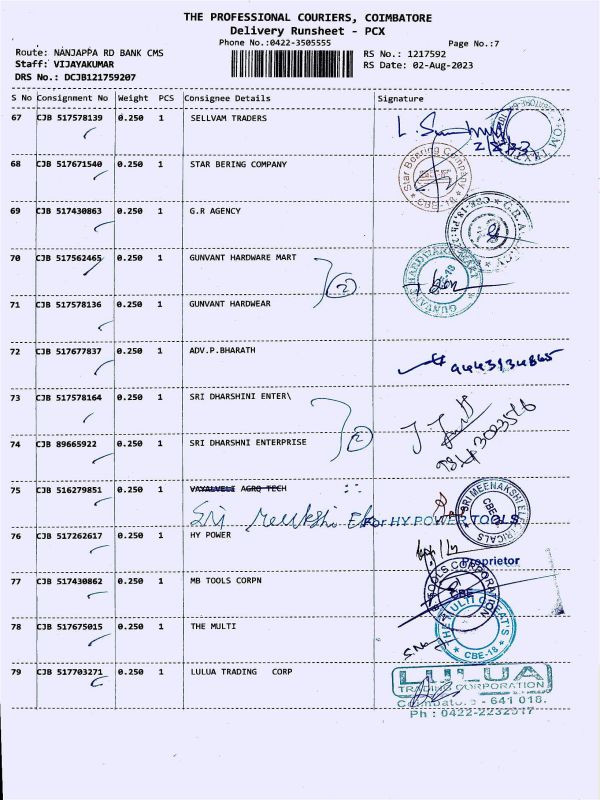 THE PROFESSIONAL COURIERS, COIMBATORE
Delivery Runsheet - PCX
Phone No.:0422-3505555
Page No.:7
Route: NANJAPPA RD BANK CMS
RS No.: 1217592
Staff: VIJAYAKUMAR
RS Date: 02-Aug-2023
DRS No.: DCJB121759207
S No Consignment No Weight PCS Consignee Details Signature
67 CJB 517578139 0.250 1 SELLVAM TRADERS
68 CJB 517671540 0.250 1 STAR BERING COMPANY
Star Bearing Company CBE-18
69 CJB 517430863 0.250 1 G.R AGENCY
70 CJB 517562465 0.250 1 GUNVANT HARDWARE MART
GUNVANT HARDWARE MART
2
71 CJB 517578136 0.250 1 GUNVANT HARDWEAR
72 CJB 517677837 0.250 1 ADV.P.BHARATH
9443134865
73 CJB 517578164 0.250 1 SRI DHARSHINI ENTER\
2
74 CJB 89665922 0.250 1 SRI DHARSHNI ENTERPRISE
75 CJB 516279851 0.250 1 VAYALVELI AGRO TECH
SRI MEENAKSHI ELECTRICALS CBE
Sri
For HY POWER TOOLS
76 CJB 517262617 0.250 1 HY POWER
Proprietor
77 CJB 517430862 0.250 1 MB TOOLS CORPN
TOOLS CORPORATION CBE
78 CJB 517675015 0.250 1 THE MULTI
THE MULTI CBE-18
79 CJB 517703271 0.250 1 LULUA TRADING CORP
LULUA
TRADING CORPORATION
Coimbatore - 641 018.
Ph : 0422-2232317